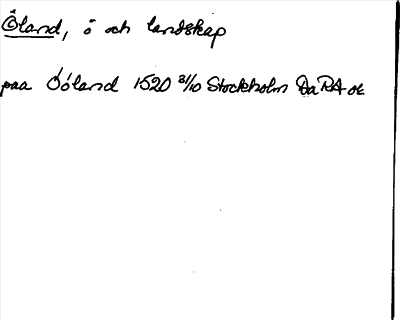 Öland, ö och landskap
paa Óóland 1520 31/10 Stockholm DaRA ok